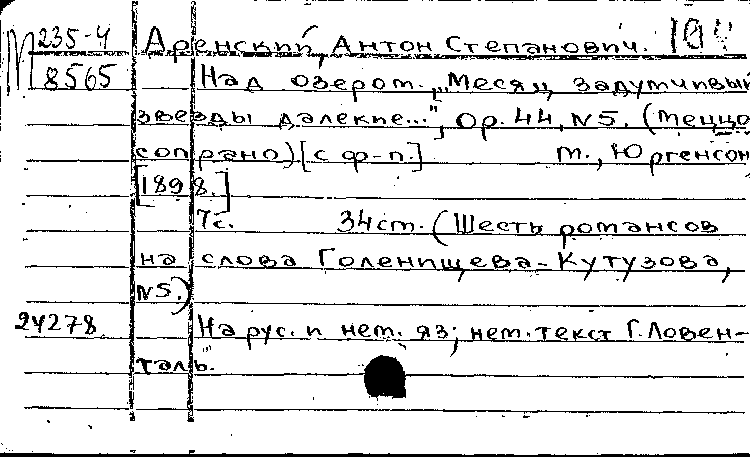 М 235-4 Аренский, Антон Степанович. 104
8565 Над озером. „Месяц задумчивый
звезды далекие...", Ор. 44, N5. (меццо
сопрано) [с ф-п.] М., Юргенсон,
[1898.]
7с. 34ст. (Шесть романсов
на слова Голенищева-Кутузова,
N5.)
24278 На рус. и нем. яз; нем. текст Г. Ловен-
таль.